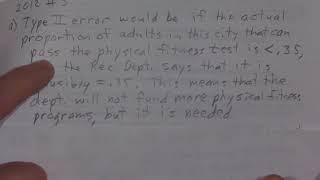 2012 #5
a) Type II error would be if the actual
proportion of adults in this city that can
pass the physical fitness test is <.35,
the Rec Dept. says that it is
plausibly = .35. This means that the
dept. will not fund more physical fitness
programs, but it is needed